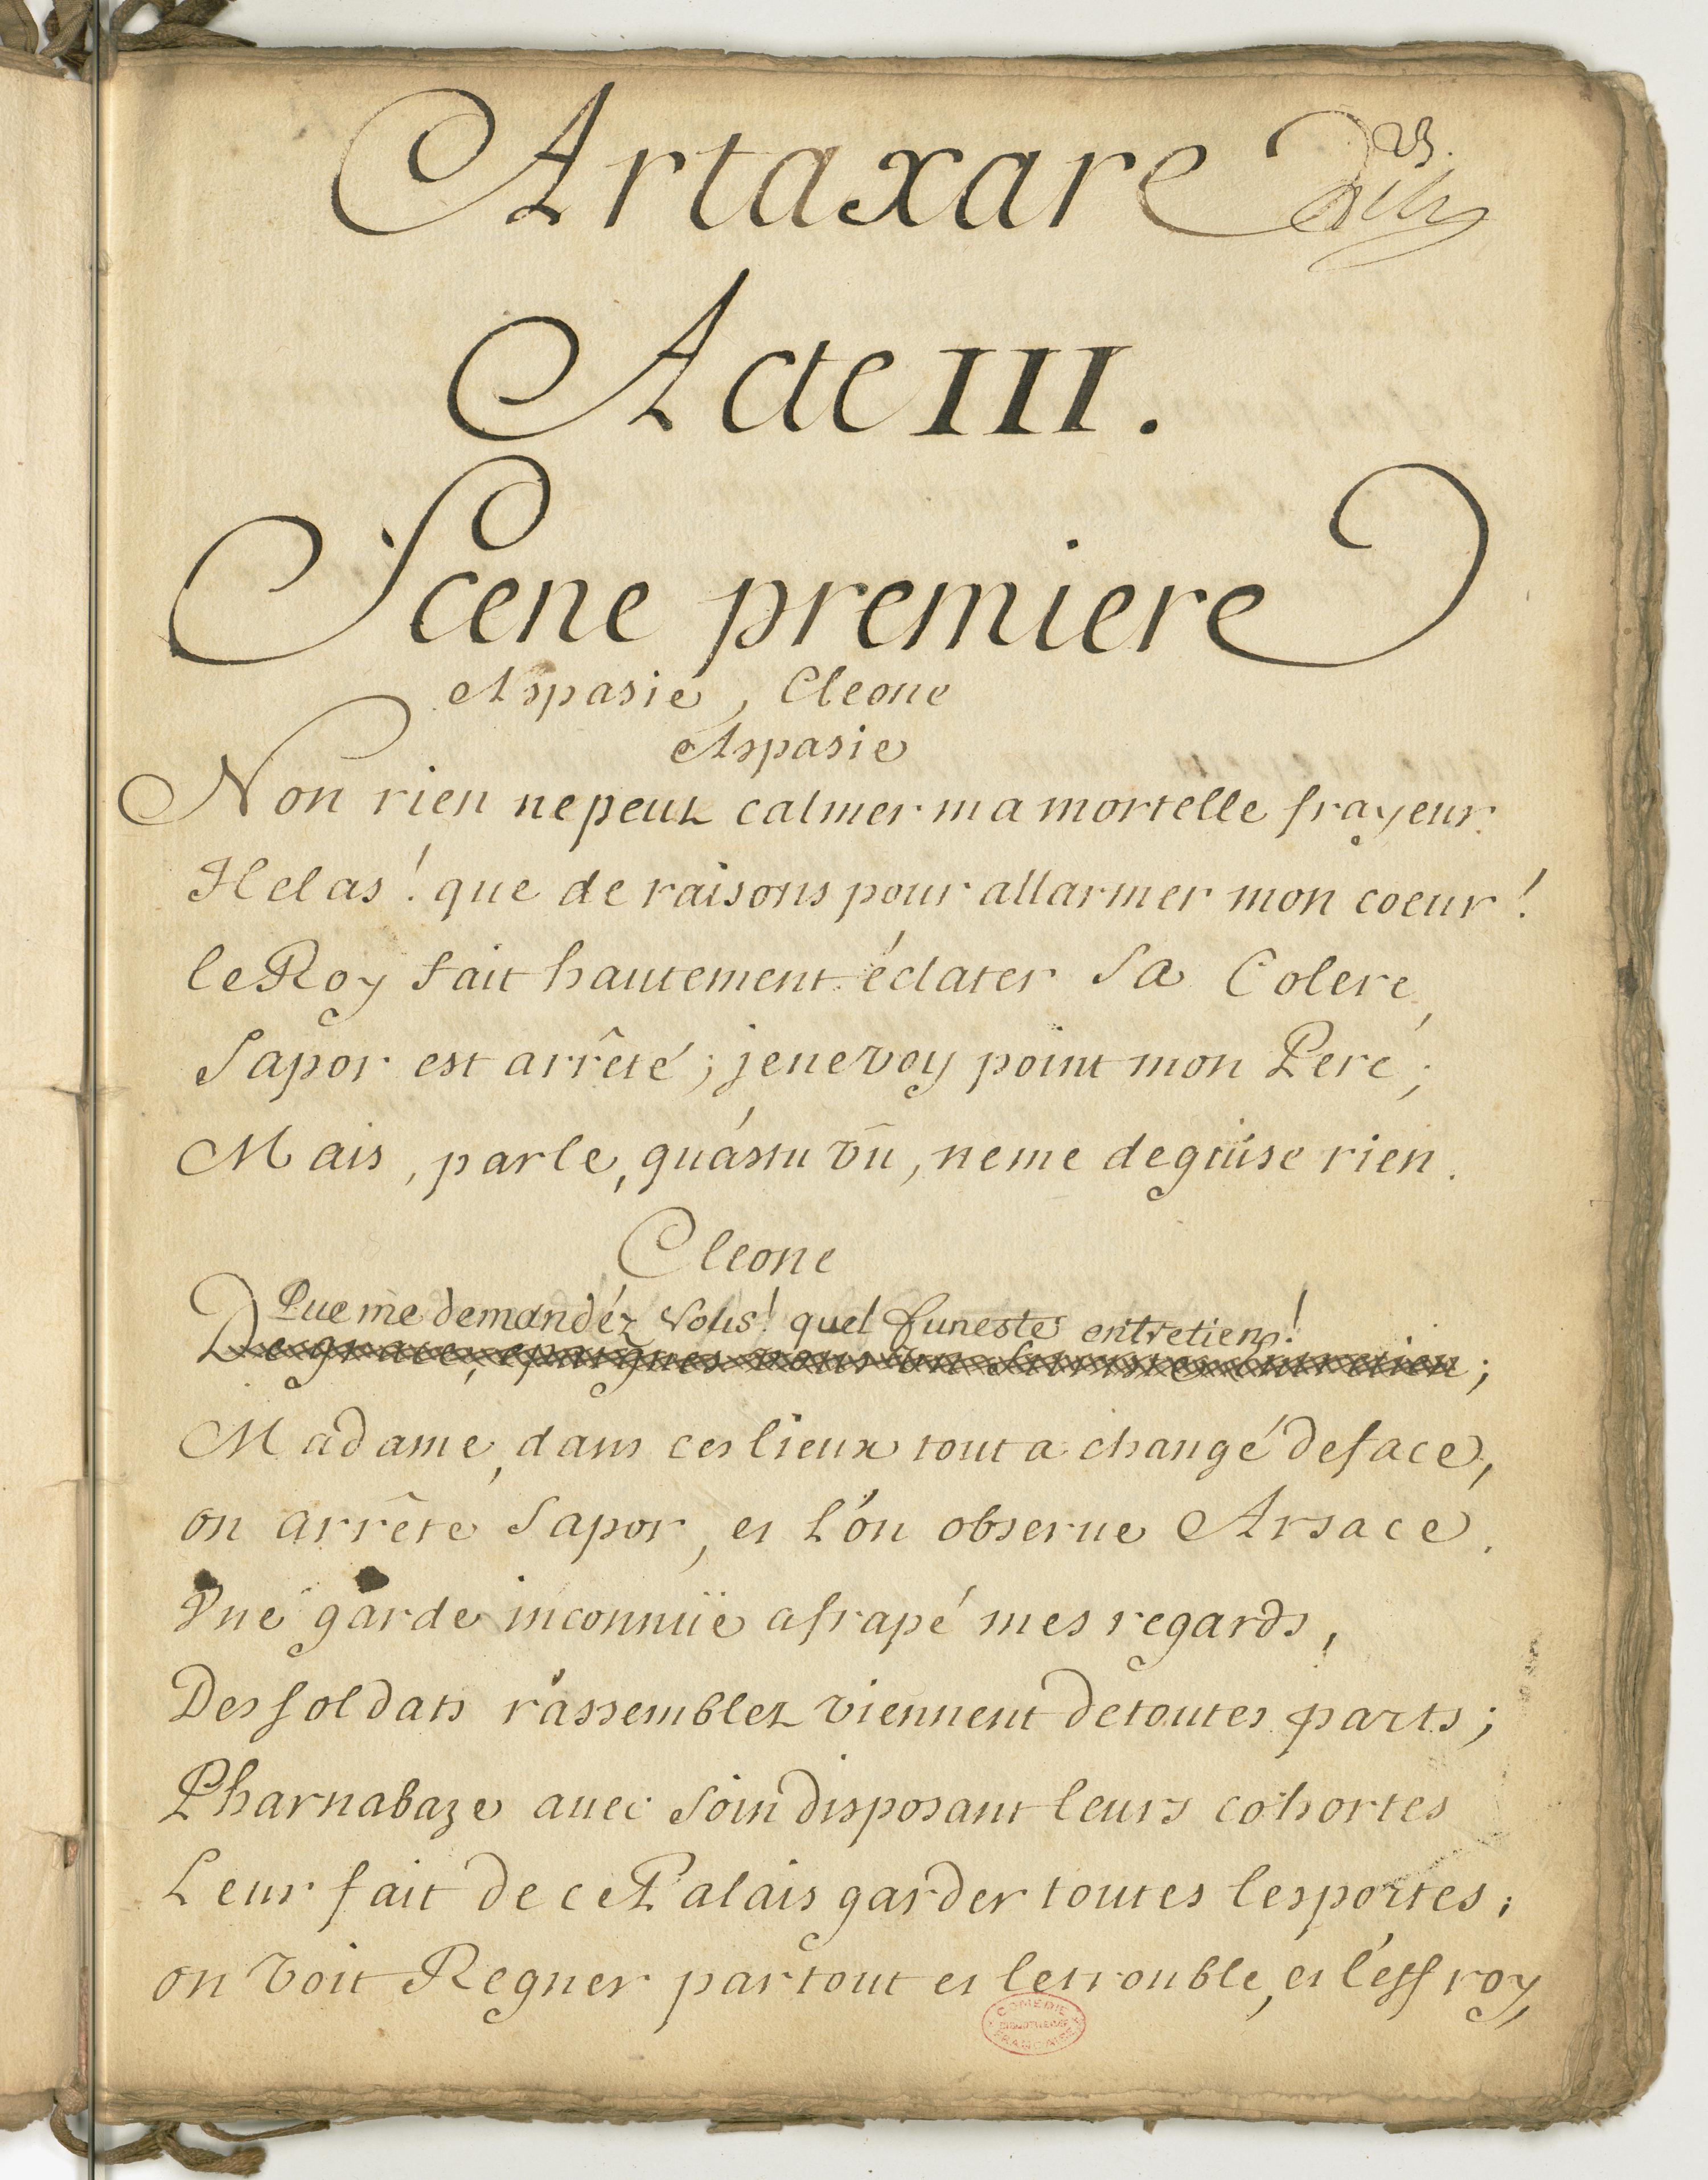 Artaxare
23.
Acte III.
Scene premiere
Aspasie, Cleone
Aspasie
Non rien ne peut calmer ma mortelle frayeur.
Helas! que de raisons pour allarmer mon coeur!
le Roy fait hautement éclater sa Colere,
Sapor est arrêté; je ne voy point mon Pere;
Mais, parle, qu'astu vû, ne me deguise rien.
Cleone
Que me demandéz vous! quel funeste entretien!
De grace, epargnez nous un entretien;
Madame, dans ces lieux tout a changé de face,
on arrête Sapor, et l'on obserue Arsace.
Vne garde inconnüe a frapé mes regards,
Des soldats rassemblez viennent de toutes parts;
Pharnabaze auec soin disposant leurs cohortes
Leur fait de ce Palais garder toutes les portes;
on voit Regner partout et le trouble, et l'effroy,
COMEDIE
BIBLIOTHEQUE
FRANCAISE